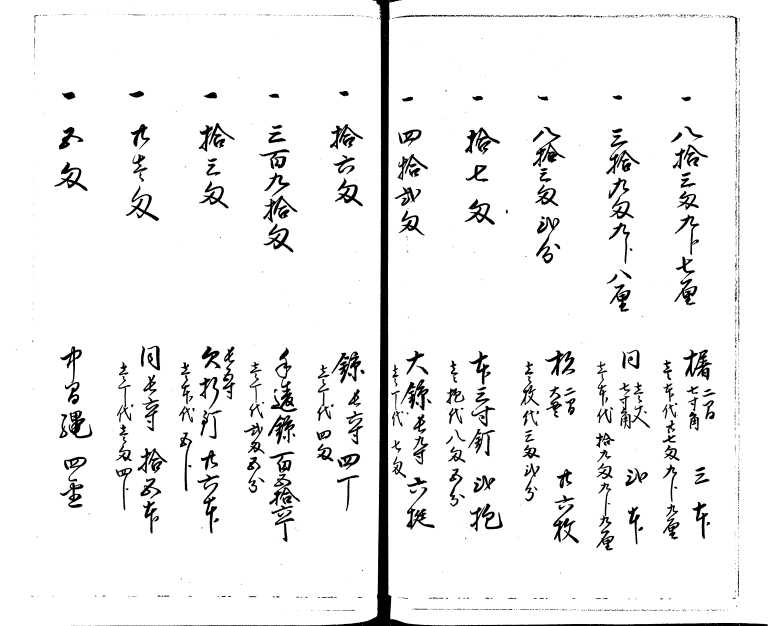 一 八拾三匁九卜七厘
二百
七寸角 三本
壱本代廿七匁九卜九厘
一 三拾九匁九卜八厘
同 七寸角 弐本
壱本代拾九匁九卜九厘
一 八拾三匁弐分
松 廿六枚
壱枚代三匁弐分
一 拾七匁
本三寸釘 弐抱
壱抱代八匁五分
一 四拾弐匁
大鎹 六挺
壱丁代七匁
一 拾六匁
鎹 四丁
壱丁代四匁
一 三百九拾匁
手違鎹 百五拾六丁
壱丁代弐匁五分
一 拾三匁
欠折釘 廿六本
壱本代五卜
一 廿壱匁
同 拾五本
壱丁代壱匁四卜
一 五匁
中間縄 四